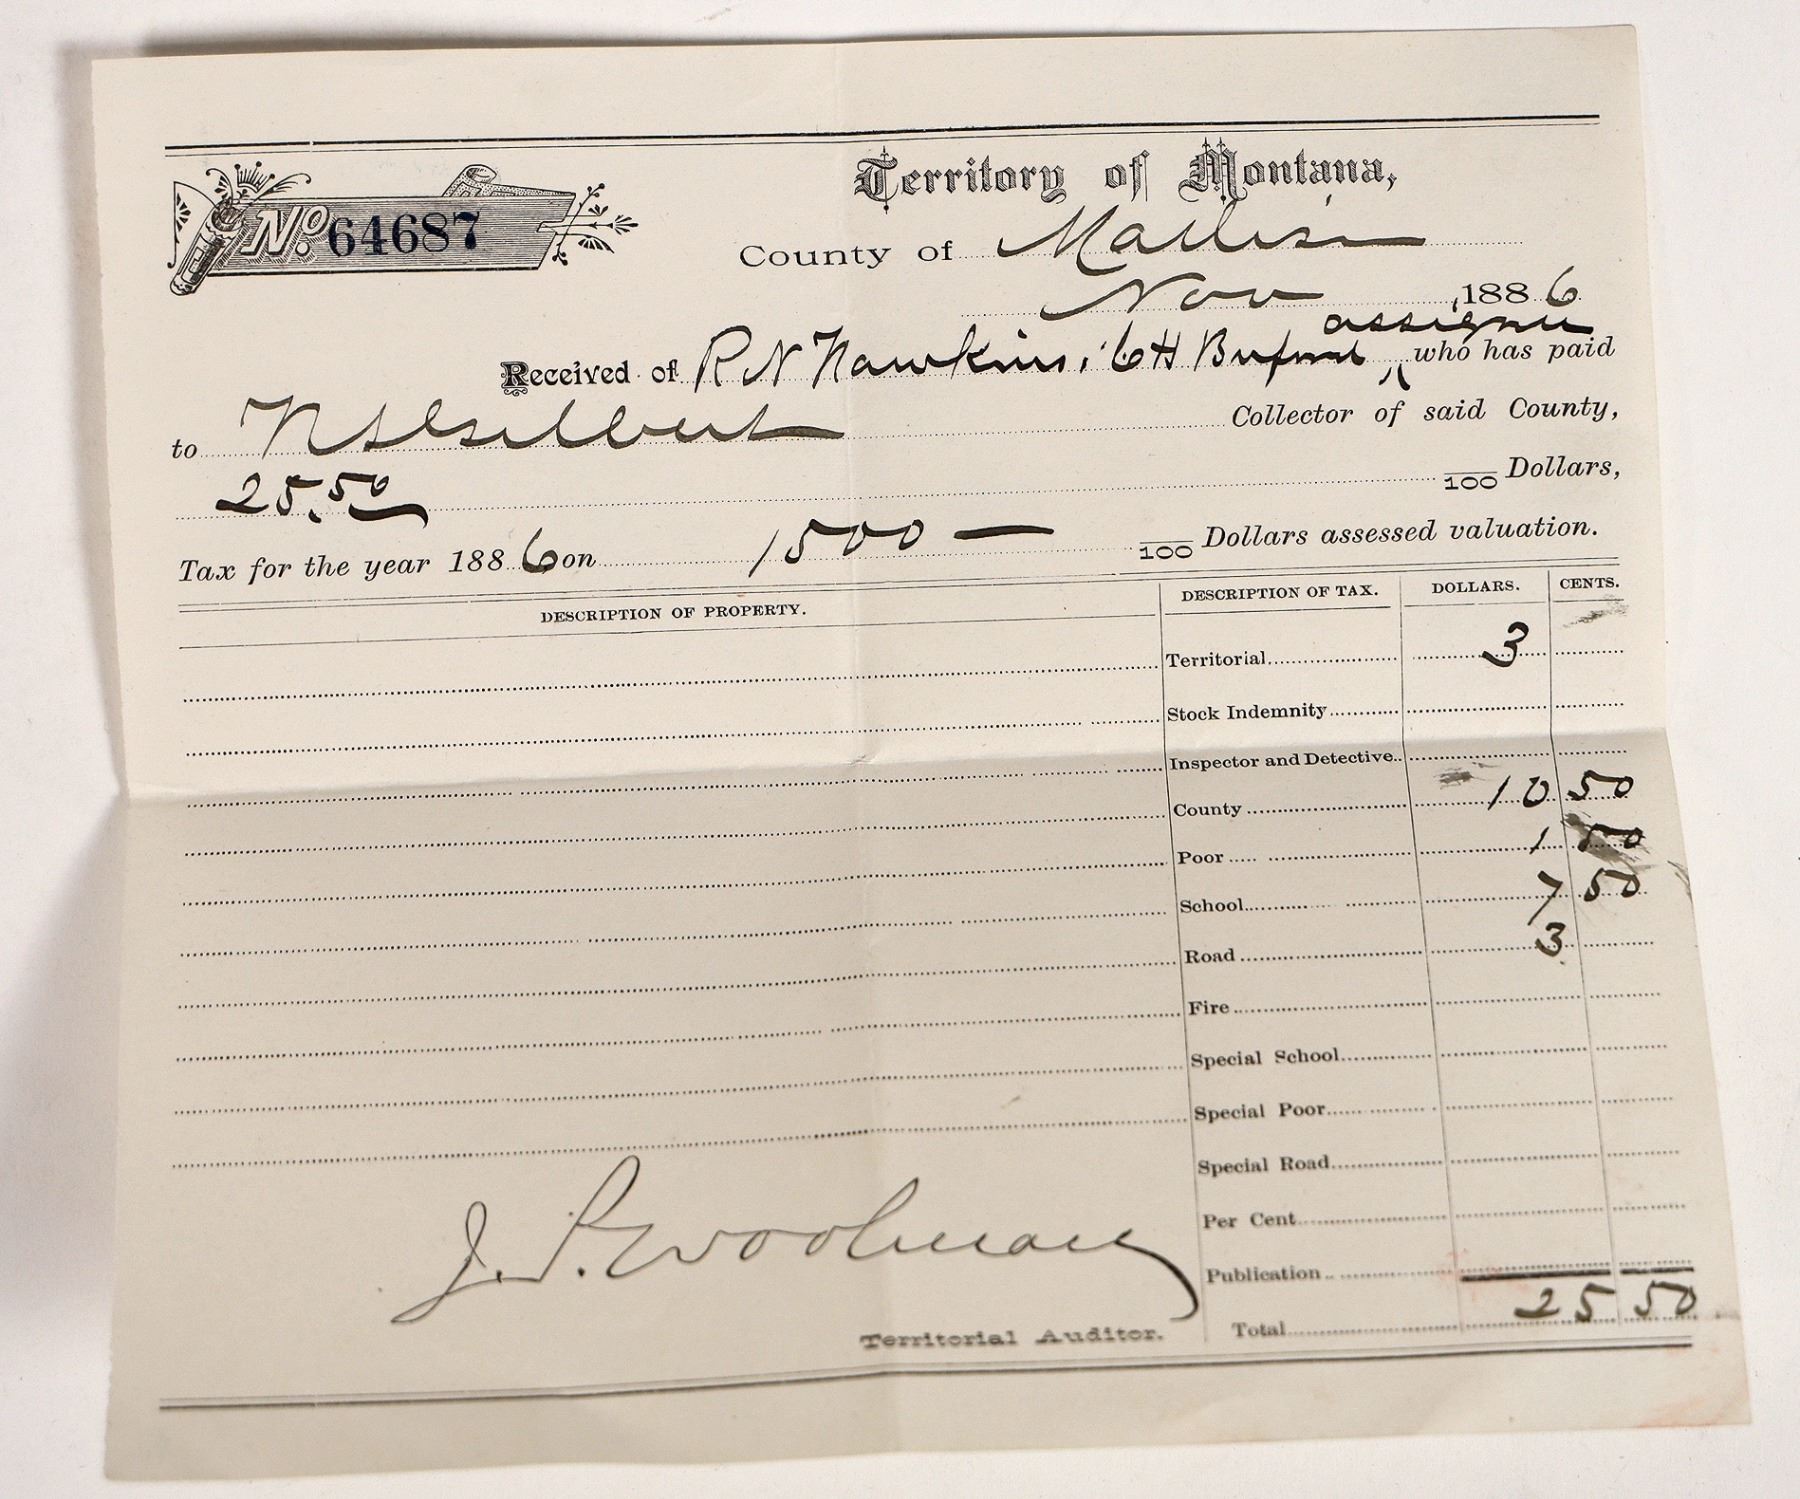 No. 64687
Territory of Montana,
County of Madison
Nov , 1886
assignee
Received of R N Hawkins; C H Buford ^ who has paid
to Collector of said County,
25.50 /100 Dollars,
Tax for the year 1886 on 1500 — /100 Dollars assessed valuation.
DESCRIPTION OF PROPERTY. DESCRIPTION OF TAX. DOLLARS. CENTS.
Territorial 3
Stock Indemnity
Inspector and Detective
County 10 50
Poor 1 50
School 7 50
Road 3
Fire
Special School
Special Poor
Special Road
Per Cent
Publication
Total 25 50
J. P. Woolman
Territorial Auditor.